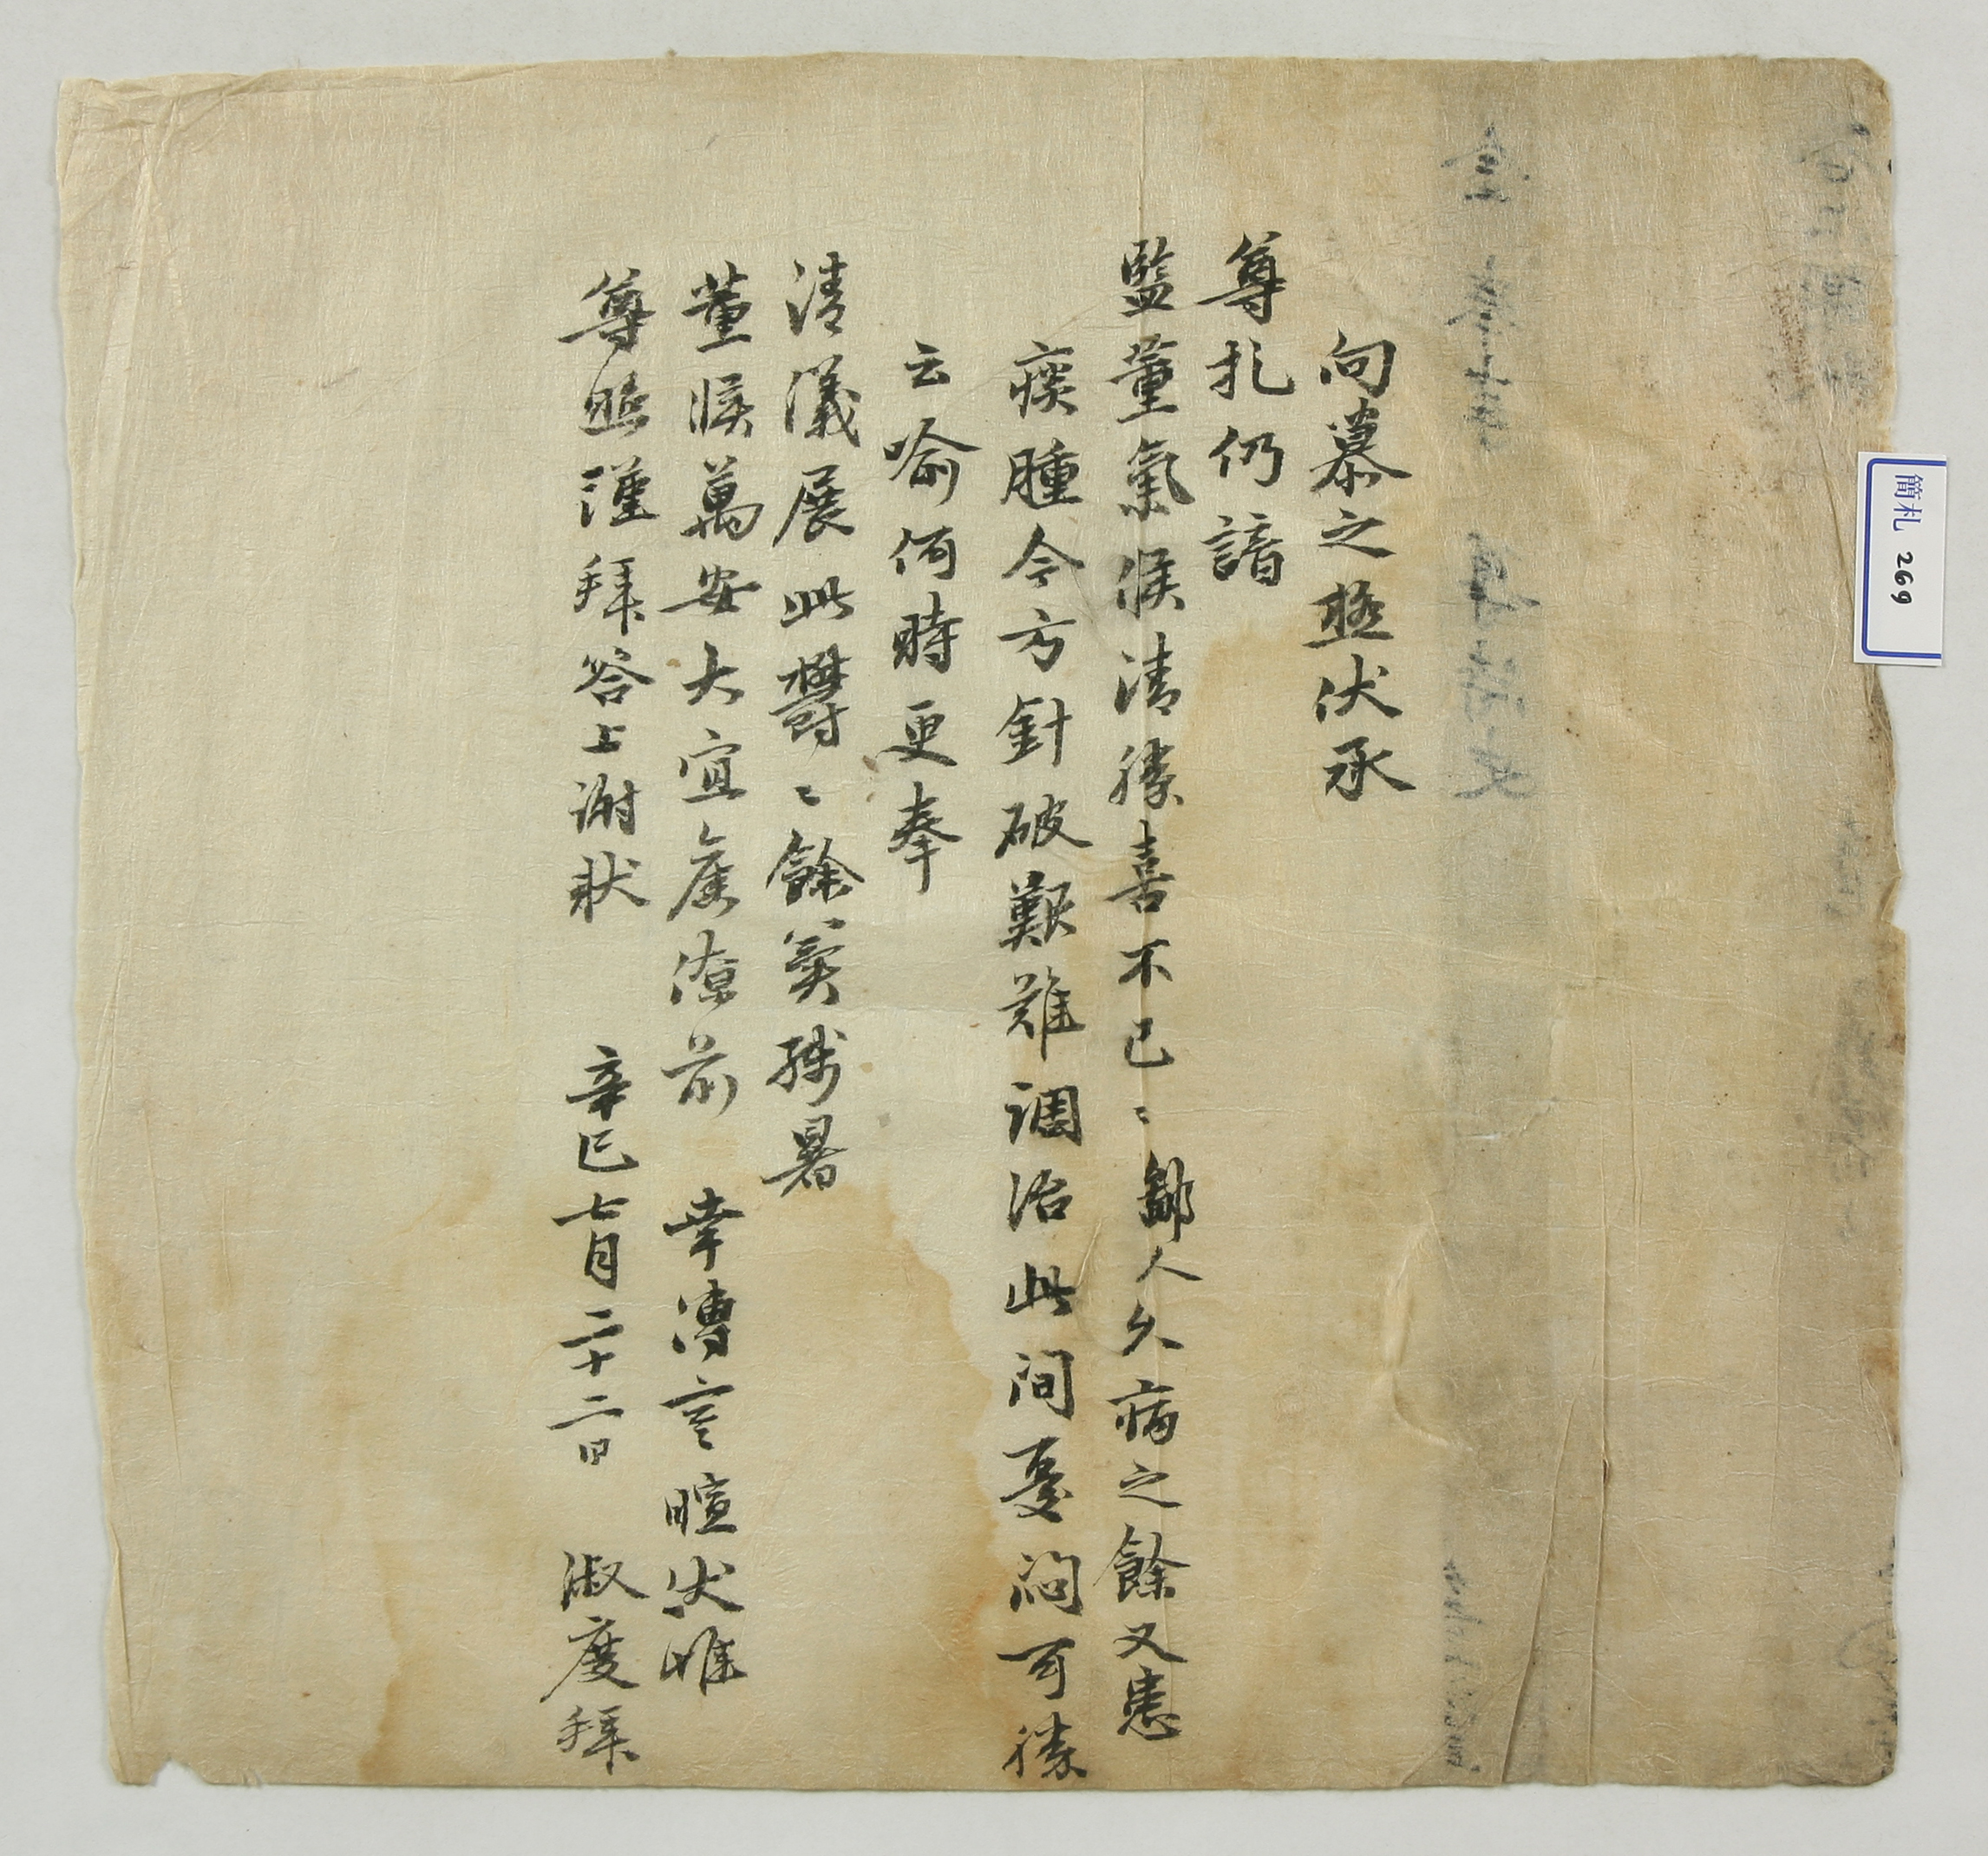 向慕之極伏承
尊札仍諳
監董氣候清勝喜不已〻鄙人久病之餘又患
痰腫今方針破艱難調治此間憂悶可勝
云喩何時更奉
清儀展此欝〻餘冀殘暑
董候萬安大宜 潦前 幸傳言暄伏惟
尊照謹拜答上謝狀 辛巳七月二十二日 淑度拜
簡札 269